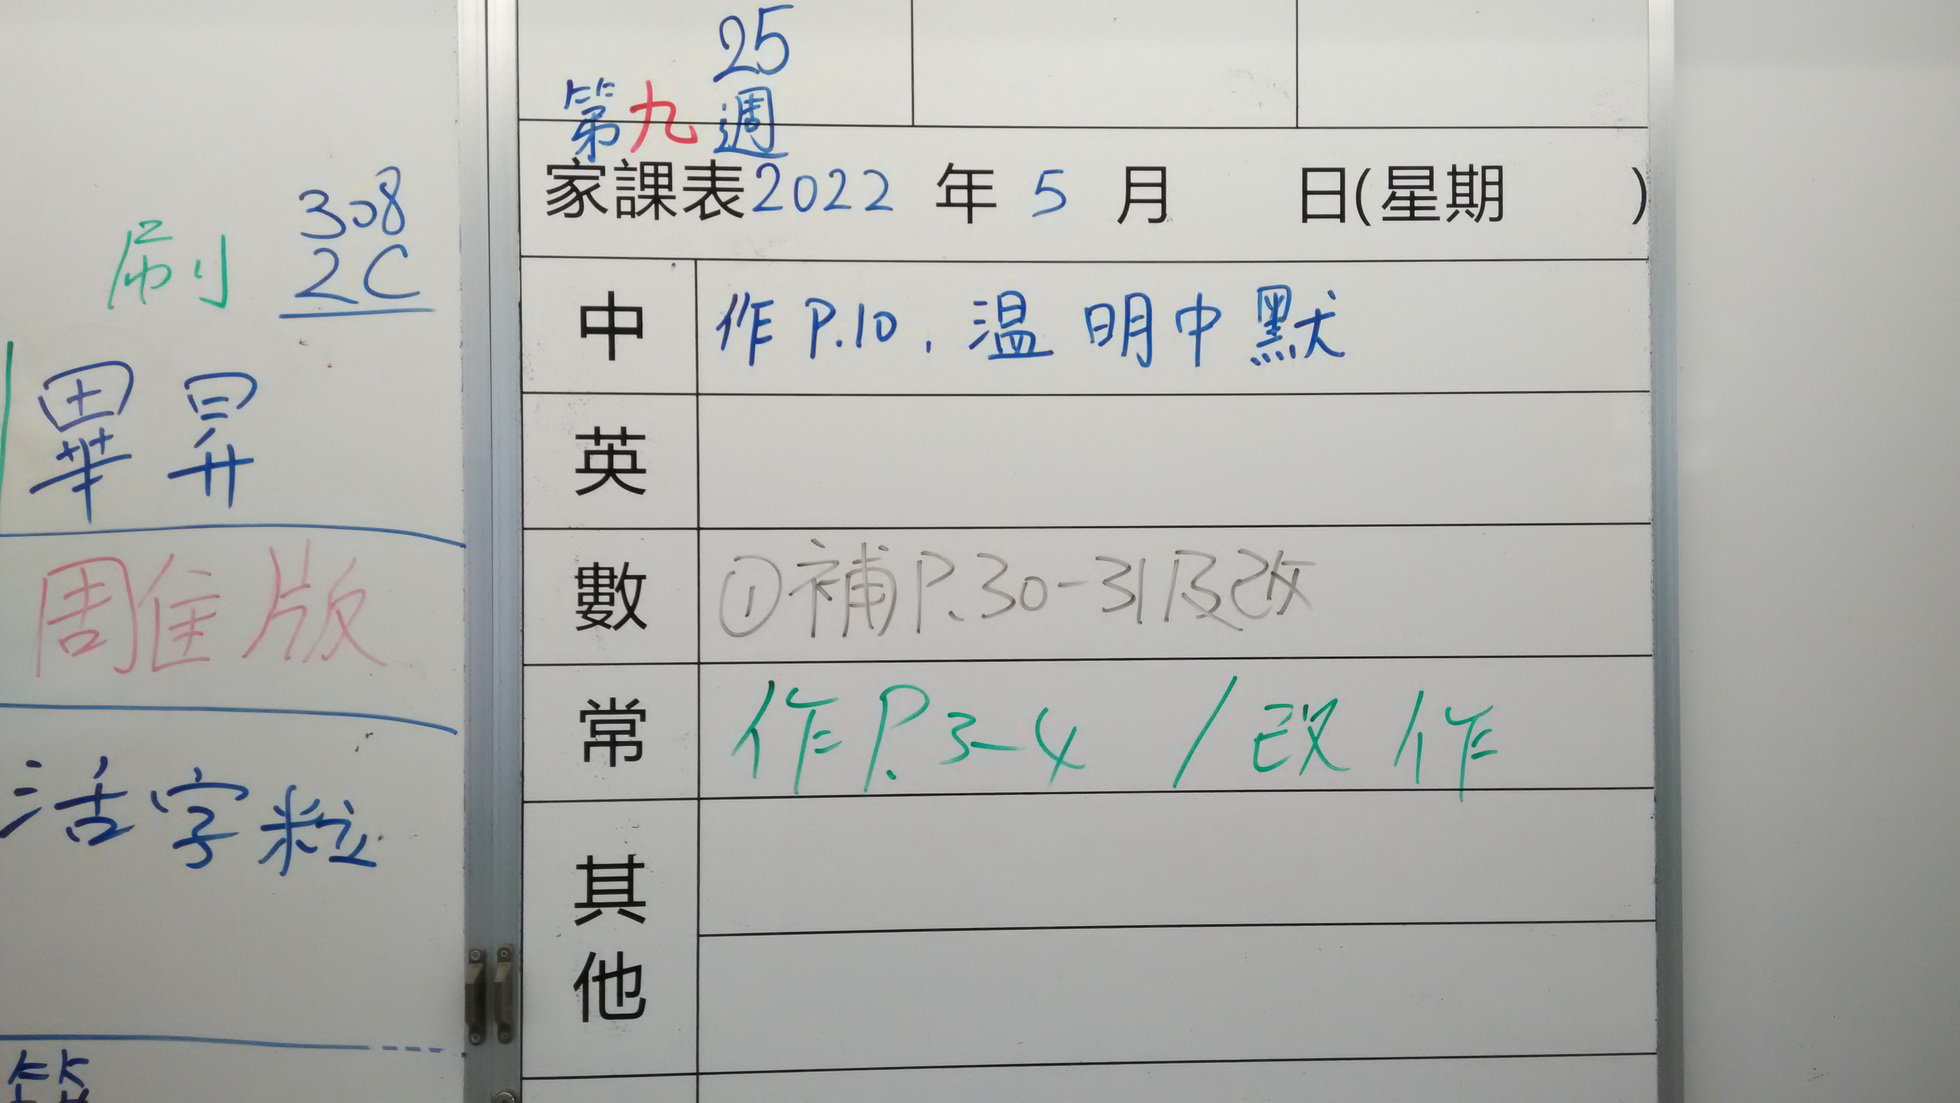 刷
308
2C
畢昇
周隹版
活字粒
25
第九週
家課表2022年5月 日(星期 )
中 作P.10,温 明中默
英
數 ①補P.30-31及改
常 作P.3-4 / 改作
其他